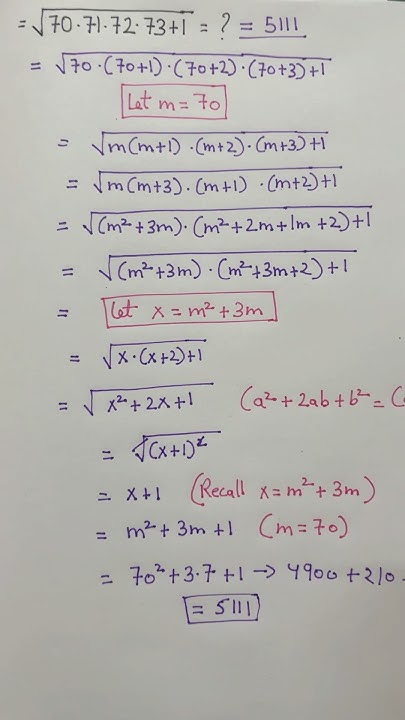 = √70·71·72·73+1 = ? = 5111
= √70·(70+1)·(70+2)·(70+3)+1
Let m = 70
= √m(m+1)·(m+2)·(m+3)+1
= √m(m+3)·(m+1)·(m+2)+1
= √(m²+3m)·(m²+2m+1m+2)+1
= √(m²+3m)·(m²+3m+2)+1
= Let x = m²+3m
= √x·(x+2)+1
= √x²+2x+1 (a²+2ab+b² = (
= √(x+1)²
= x+1 (Recall x=m²+3m)
= m²+3m+1 (m=70)
= 70²+3·7+1 → 4900+210
= 5111